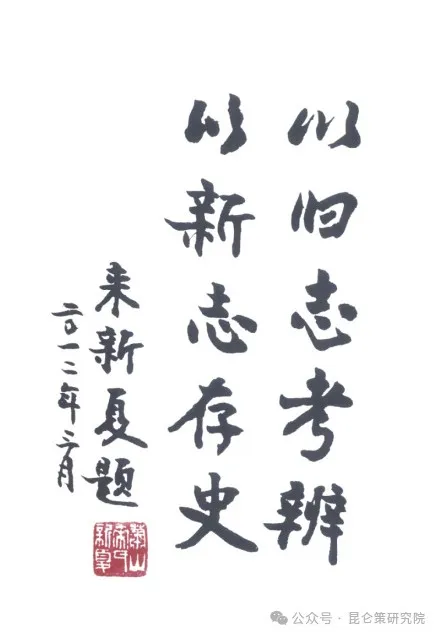 以旧志考辨
以新志存史
来新夏题
二〇一二年三月
萧山来氏新夏
公众号·昆仑策研究院